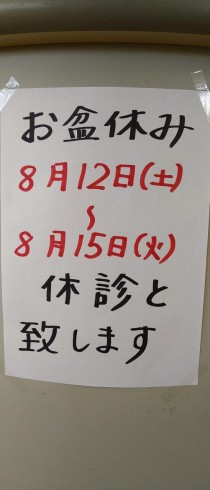 お盆休み
8月12日(土)
～
8月15日(火)
休診と
致します